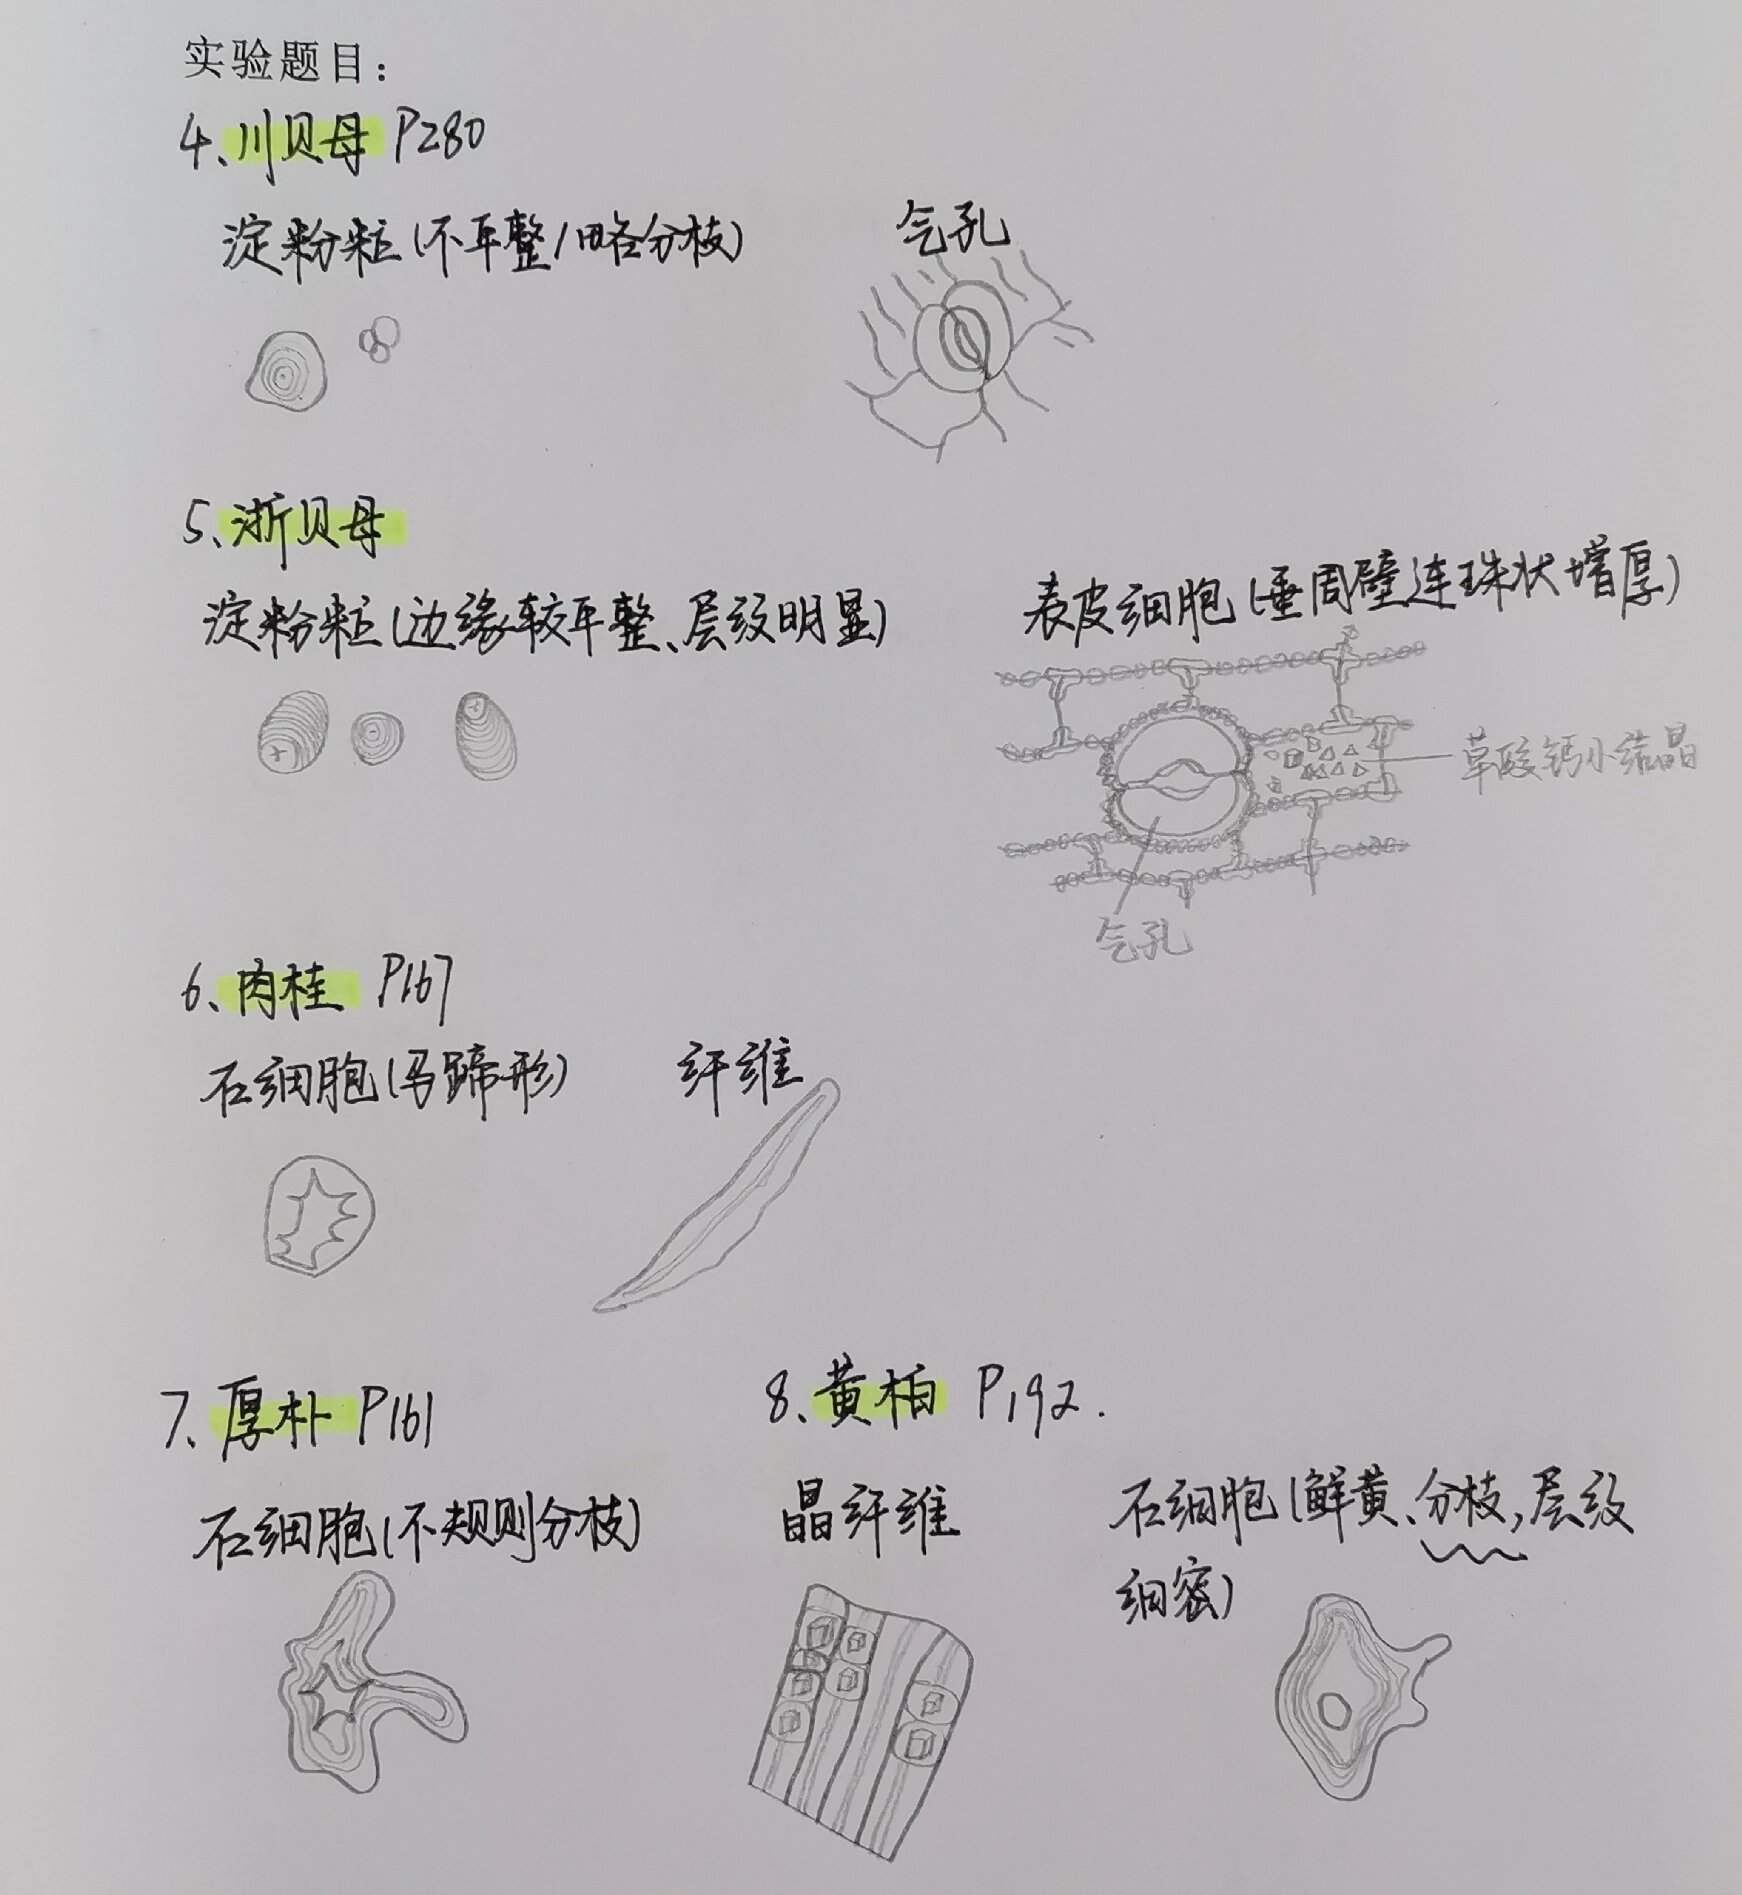 实验题目：
4、川贝母 P280
淀粉粒(不平整/略分枝)
气孔
5、浙贝母
淀粉粒(边缘较平整、层纹明显)
表皮细胞(垂周壁连珠状增厚)
草酸钙小结晶
气孔
6、肉桂 P167
石细胞(马蹄形)
纤维
7、厚朴 P161
石细胞(不规则分枝)
8、黄柏 P192.
晶纤维
石细胞(鲜黄、分枝,层纹
细密)